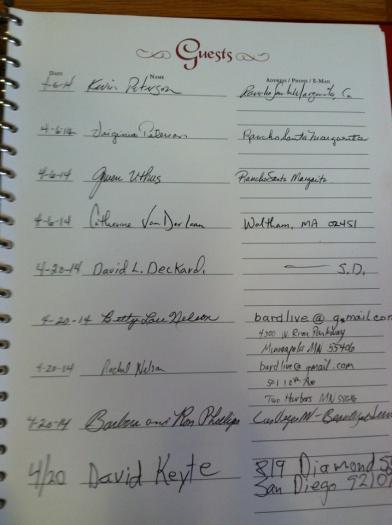 Guests
DATE NAME ADDRESS / PHONE / E-MAIL
4-6-14 Kevin Peterson Rancho Santa Margarita, Ca
4-6-14 Virginia Peterson Rancho Santa Margarita
4-6-14 Gwen Uthus Rancho Santa Margarita
4-6-14 Catherine Van Der Laan Waltham, MA 02451
4-20-14 David L. Deckard. — S.D.
4-20-14 Betty Lou Nelson bardlive@gmail.com
4300 W. River Parkway
Minneapolis MN 55406
4-20-14 Rachel Nelson bardlive@gmail.com
12th Ave
Two Harbors MN
4-20-14 Barbara and Ron Phillips
4/20 David Keyte 819 Diamond St
San Diego